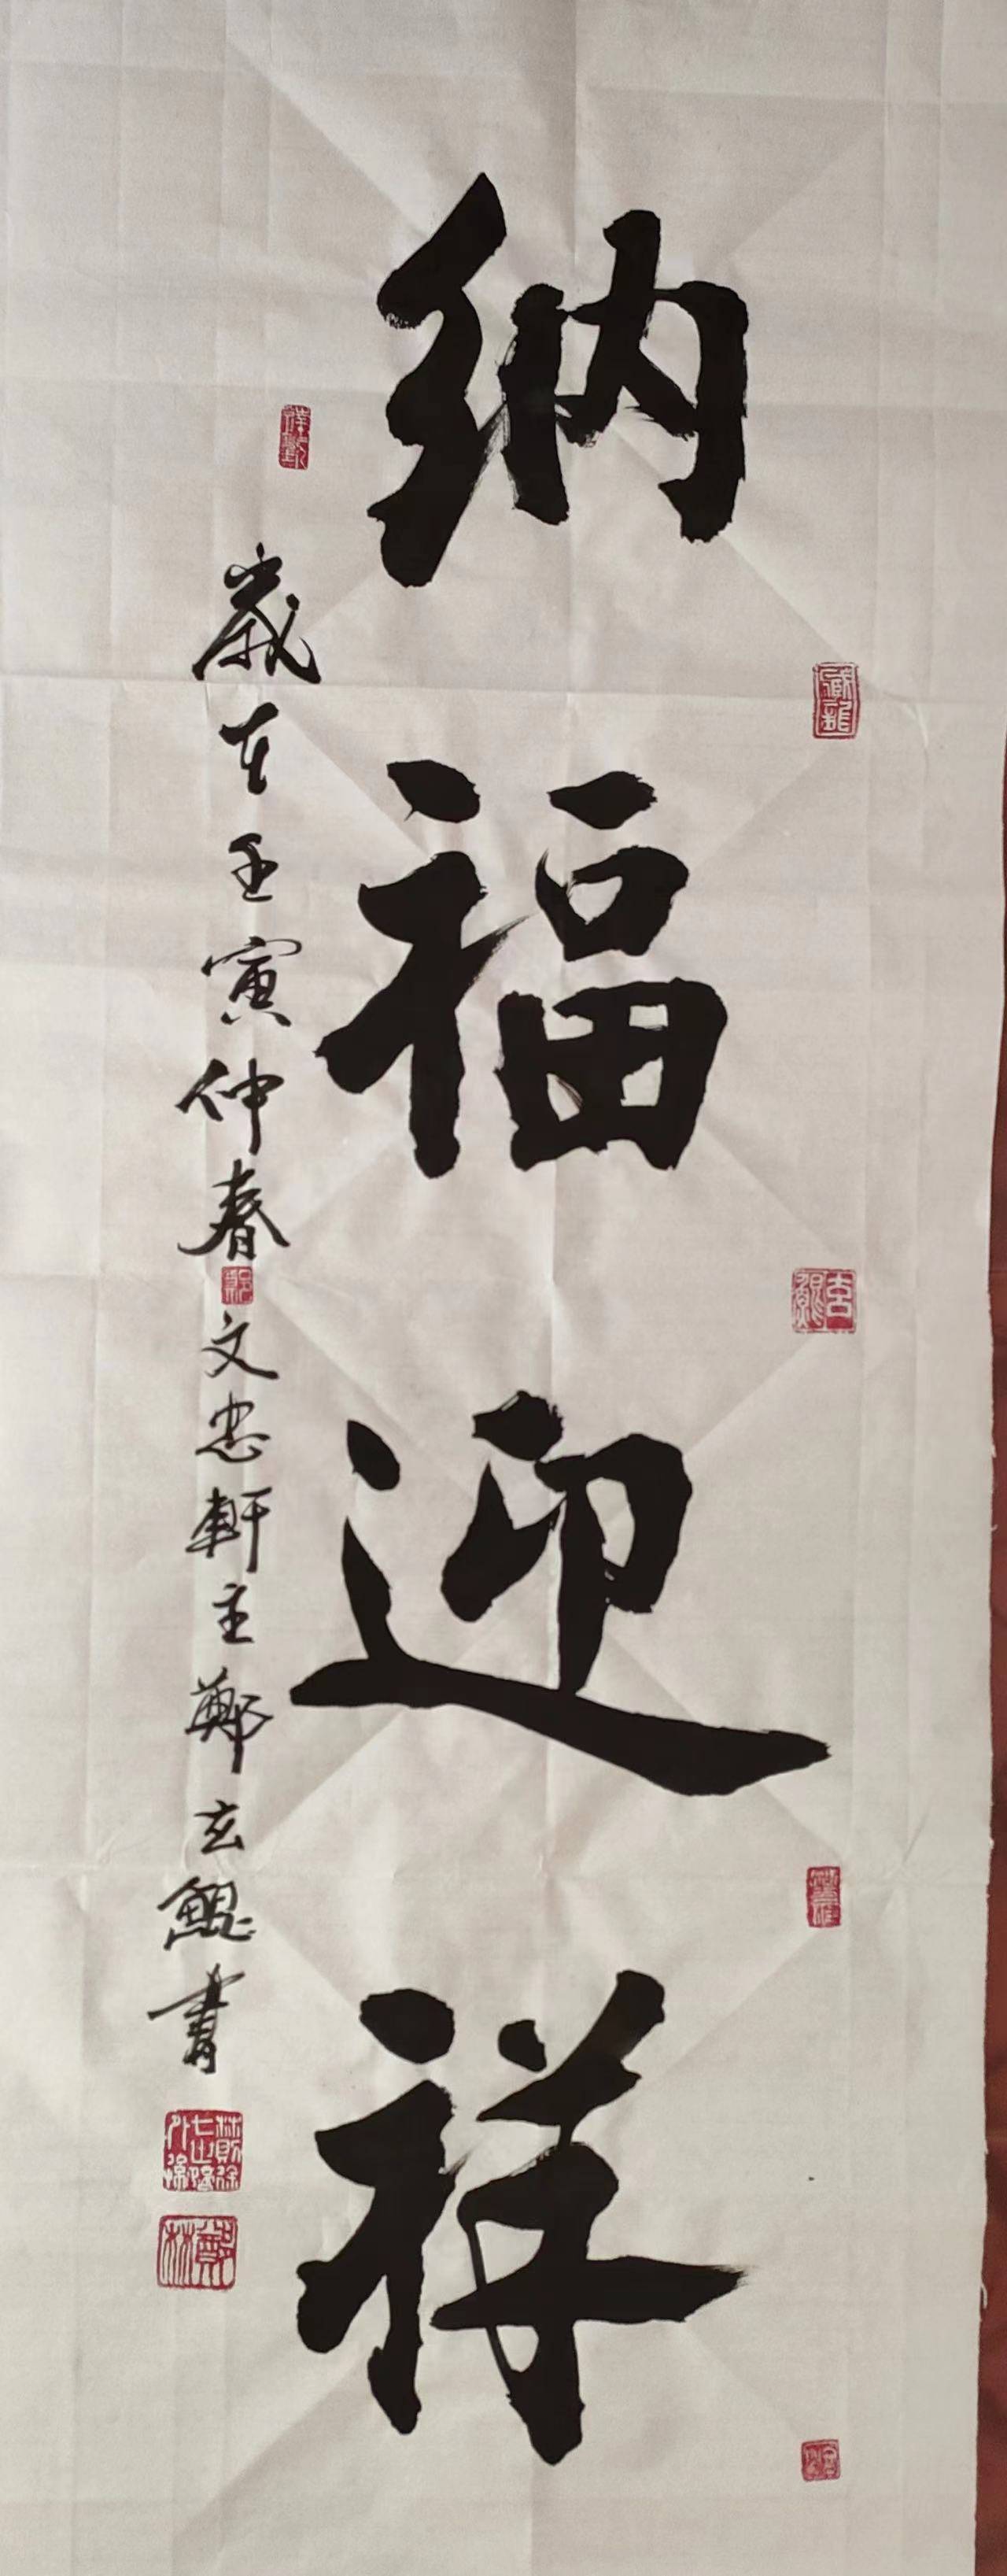 納福迎祥
歲在壬寅仲春文忠軒主鄭玄鯤書